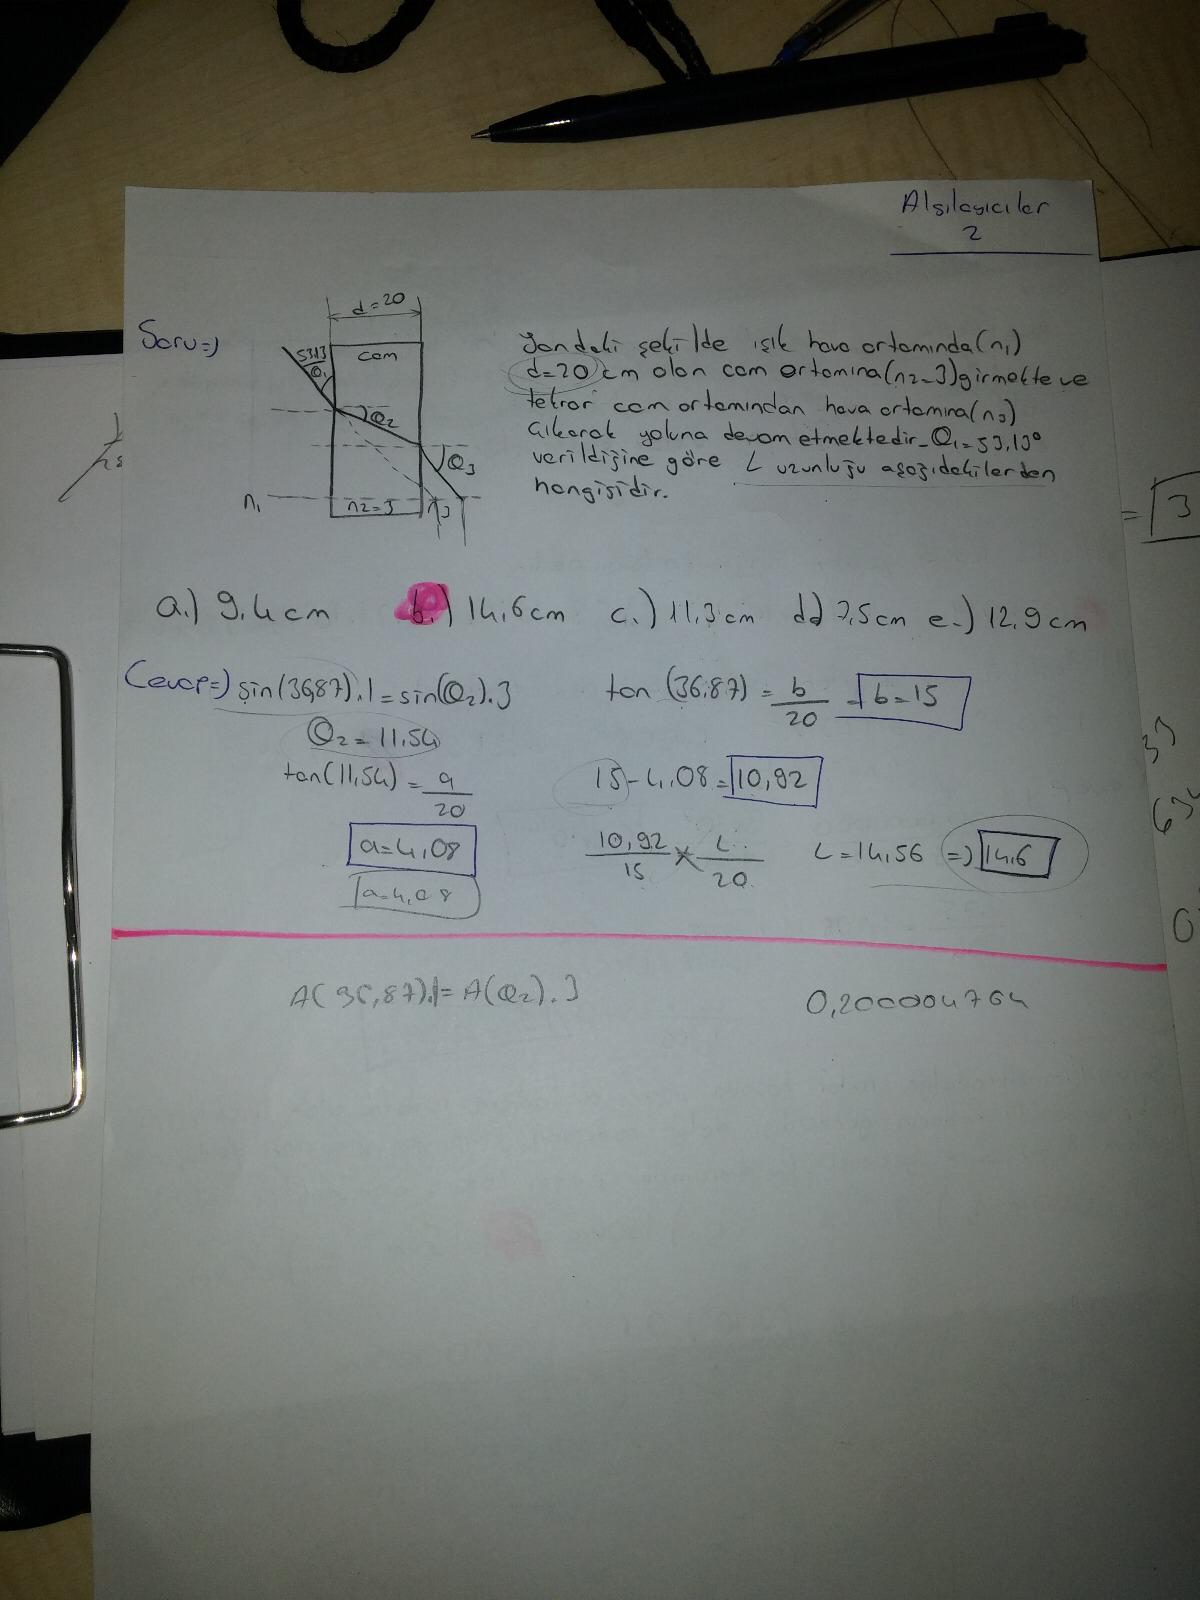 Algılayıcılar
2
Soru=)
d=20
53,13
Q1
cam
Q2
Q3
n1
n2=3
n3
Yandaki şekilde ışık hava ortamında(n1)
d=20 cm olan cam ortamına(n2=3)girmekte ve
tekrar cam ortamından hava ortamına(n3)
çıkarak yoluna devam etmektedir. Q1=53,13°
verildiğine göre L uzunluğu aşağıdakilerden
hangisidir.
a.) 9,4cm b.) 14,6cm c.) 11,3cm d.) 7,5cm e.) 12,9cm
Cevap=) sin(36,87).1=sin(Q2).3
Q2=11,54
tan(11,54)=a/20
a=4,08
a=4,08
tan (36,87) = b/20 = b=15
15-4,08=10,92
10,92/15 × L/20 L=14,56 =) 14,6
A(36,87).1=A(Q2).3
0,200004764
= 3